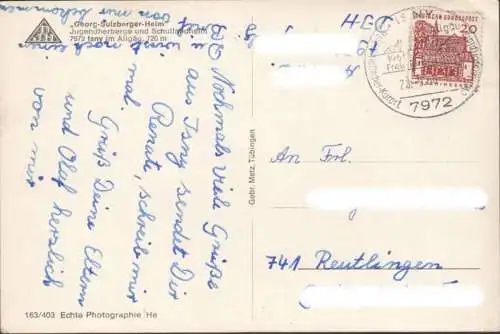 „Georg-Sulzberger-Heim"
Jugendherberge und Schullandheim
7972 Isny im Allgäu, 720 m
Nochmals viele Grüße
aus Isny sendet Dir
Renate, schreibe mir
mal. Grüß Deine Eltern
und Olaf herzlich
von mir
u. wirst noch ein
Brief
von mir bekommen
163/403 Echte Photographie He
Gebr. Metz, Tübingen
DEUTSCHE BUNDESPOST
20
7972
An Frl.
741 Reutlingen